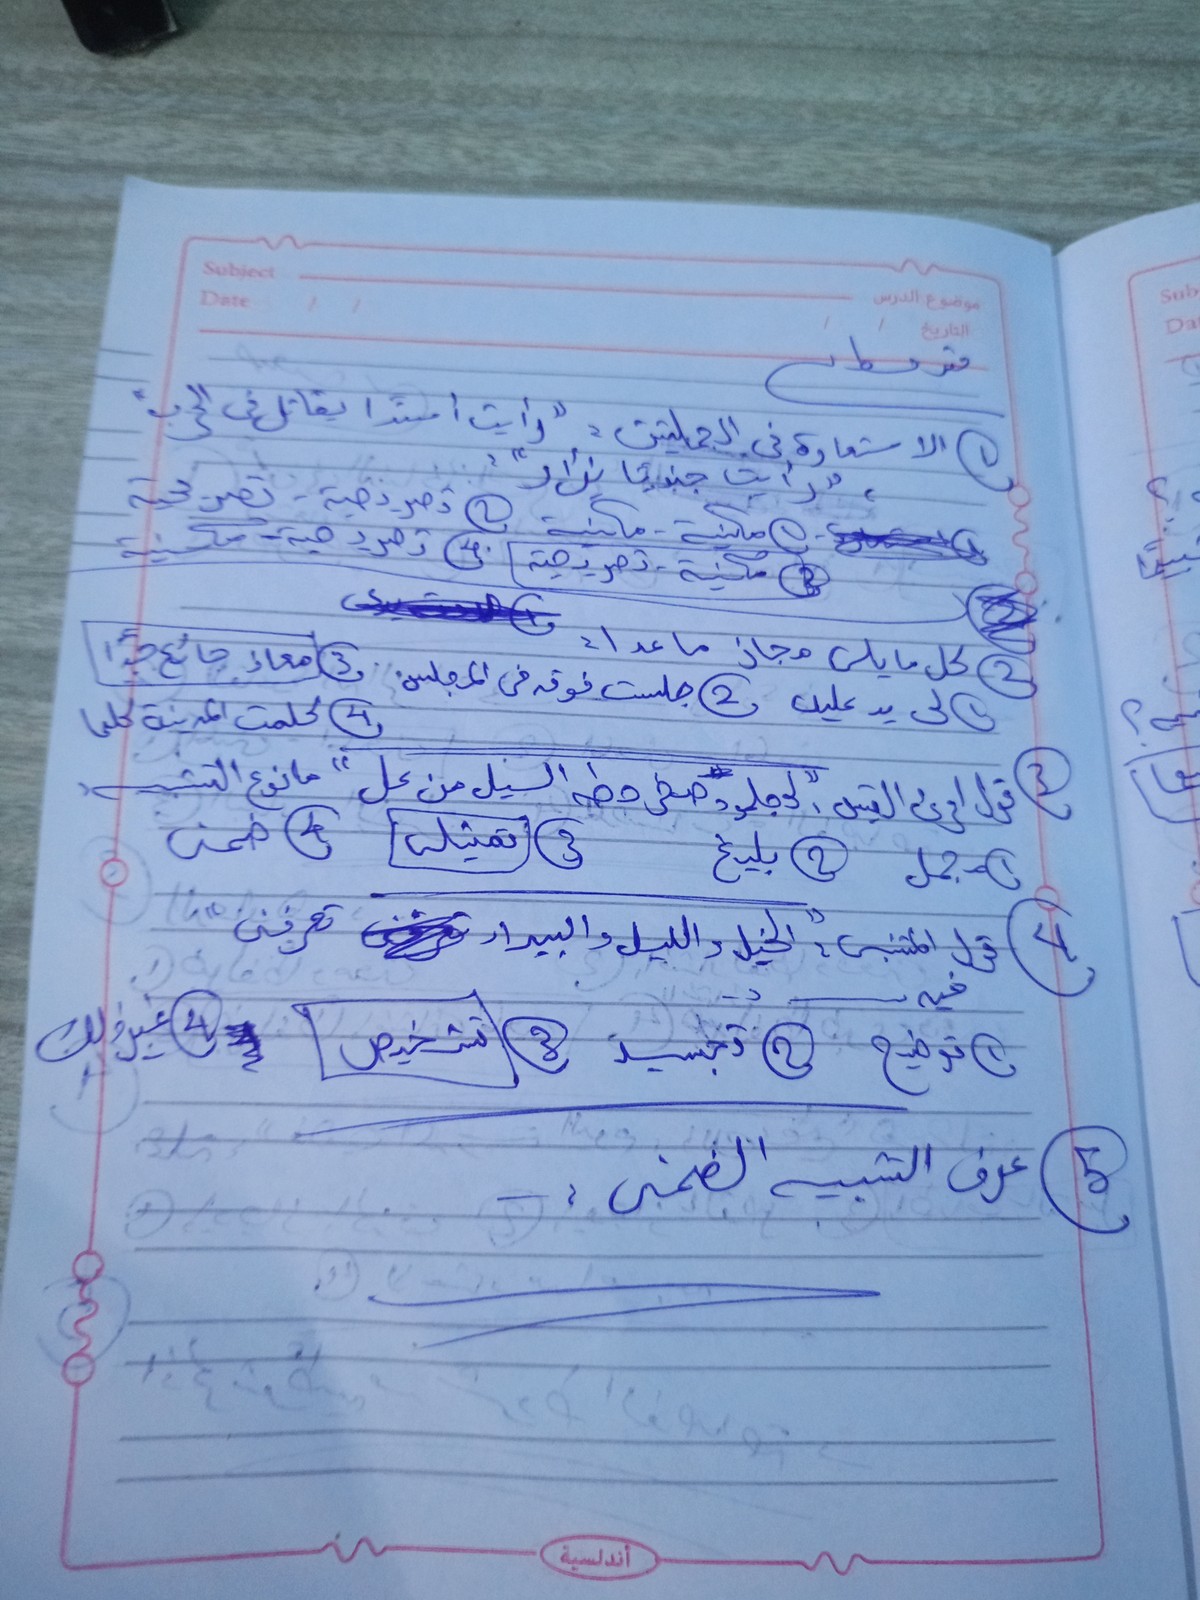 Subject
موضوع الدرس
Date / /
التاريخ / /
متوسط
① الاستعارة فى الجملتين : "رأيت أسدًا يقاتل فى الحرب"
، "رأيت جنديًا يزأر" :
① مكنية - مكنية ② تصريحية - تصريحية
③ مكنية - تصريحية ④ تصريحية - مكنية
② كل ما يلى مجاز ما عدا :
① لى يد عليك ② جلست فوقه فى المجلس ③ معاذ جائع جدًا
④ كلمت المدينة كلها
③ قول امرئ القيس : "كجلمود صخر حطه السيل من عل" ما نوع التشبيه
① مجمل ② بليغ ③ تمثيلى ④ ضمنى
④ قول المتنبى : "الخيل والليل والبيداء تعرفنى"
فيه :-
① توضيح ② تجسيد ③ تشخيص ④ غير ذلك
⑤ عرف التشبيه الضمنى :-
أندلسية
Sub
Da